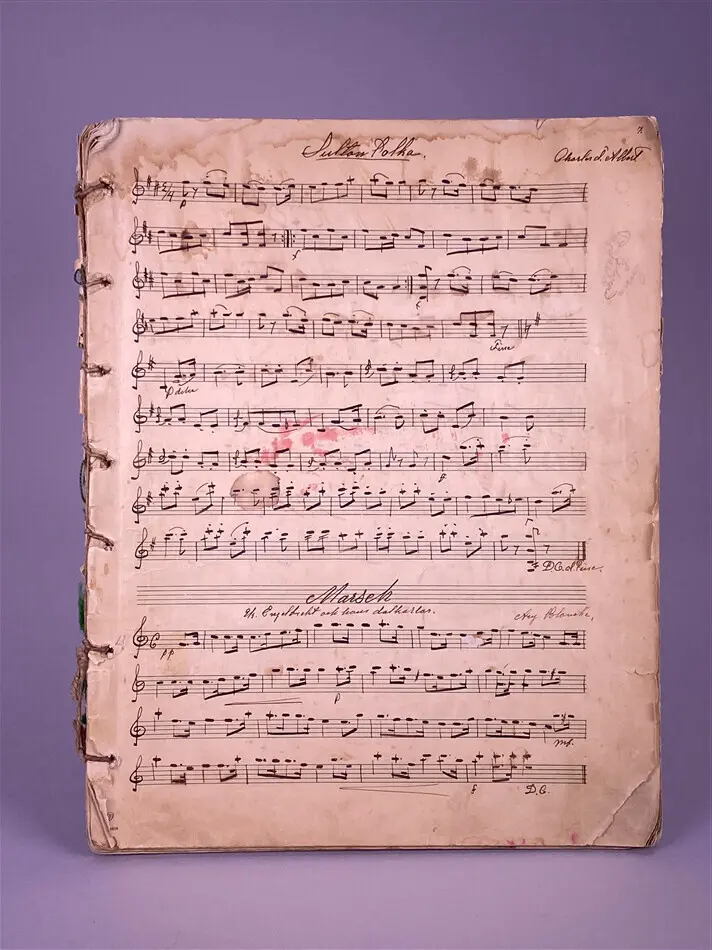 Sultan Polka. Charles d'Albert
2/4
p
f
f
Fine
f
D.C. al Fine.
Marsch
ur. Engelbrecht och hans dalkarlar. Aug. Blanche.
C pp
p
mf.
f D.C.